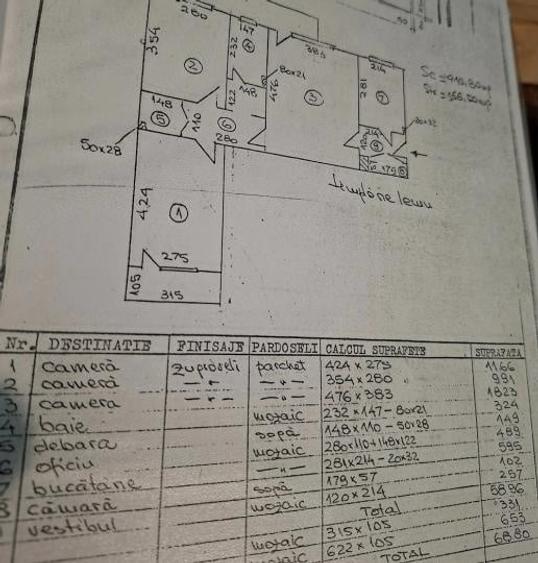 280
147
354
232
4
383
80x21
214
2
476
281
7
Sc = 916,80mp
3
148
122
148
5
110
6
280
50x28
120
214
9
20x32
179
8
tâmplărie lemn
424
1
275
105
315
Nr. DESTINATIE FINISAJE PARDOSELI CALCUL SUPRAFETE SUPRAFATA
1 cameră zugrăveli parchet 424 x 275 1166
2 cameră -"- -"- 354 x 280 991
3 camera -"- -"- 476 x 383 1823
4 baie mozaic 232 x 147 - 80x21 324
5 debara sapă 148 x 110 - 50x28 149
6 oficiu mozaic 280x110+148x122 489
7 bucătărie -"- 281x214 - 20x32 595
8 cămară sapă 179 x 57 102
vestibul mozaic 120 x 214 257
Total 5896
mozaic 315 x 105 331
mozaic 622 x 105 653
TOTAL 6880